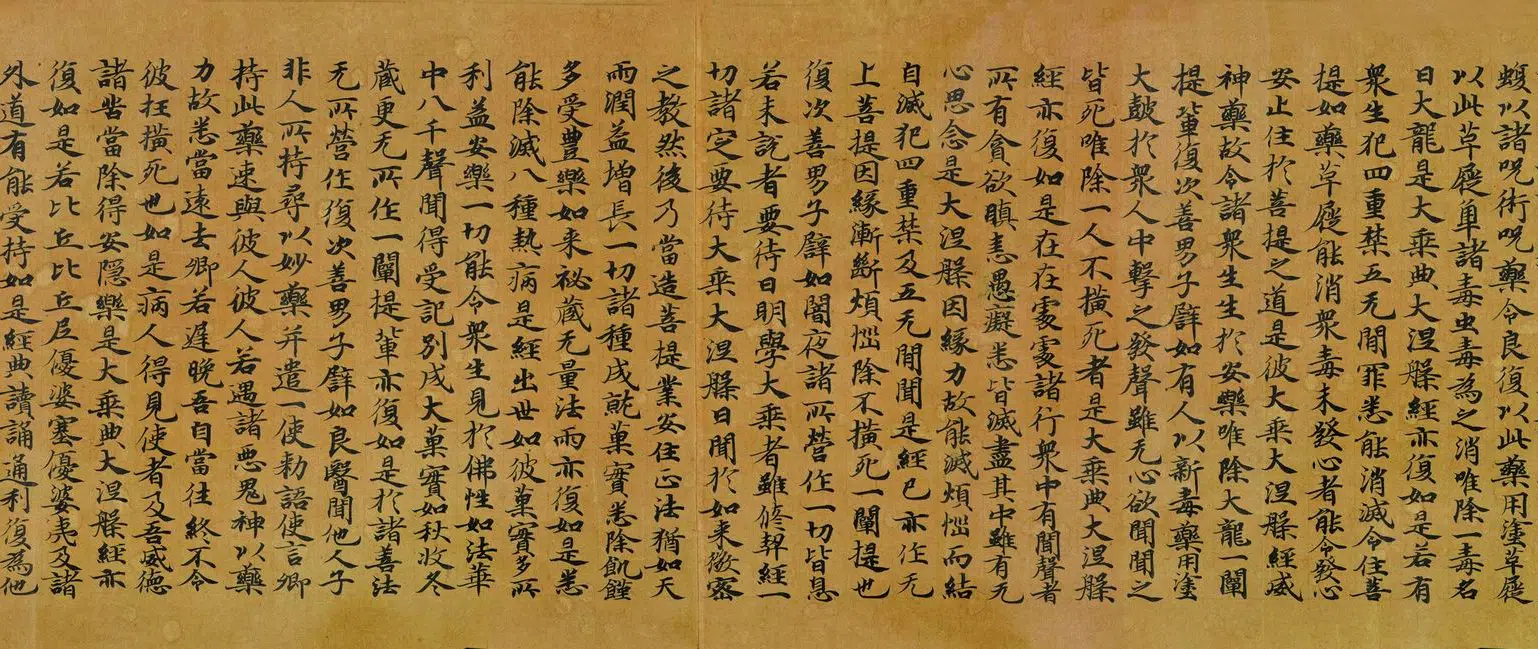 蝮以諸呪術呪藥令良復以此藥用塗草屣
以此草屣單諸毒虫毒為之消唯除一毒名
曰大龍是大乘典大涅槃經亦復如是若有
衆生犯四重禁五无閒罪悉能消滅令住菩
提如藥草屣能消衆毒未發心者能令發心
安止住於菩提之道是彼大乘大涅槃經威
神藥故令諸衆生生於安樂唯除大龍一闡
提輩復次善男子譬如有人以新毒藥用塗
大鼓於衆人中擊之發聲雖无心欲聞聞之
皆死唯除一人不橫死者是大乘典大涅槃
經亦復如是在在處處諸行衆中有聞聲者
所有貪欲瞋恚愚癡悉皆滅盡其中雖有无
心思念是大涅槃因緣力故能滅煩惱而結
自滅犯四重禁及五无閒聞是經已亦作无
上菩提因緣漸斷煩惱除不橫死一闡提也
復次善男子譬如闇夜諸所營作一切皆息
若未訖者要待日明學大乘者雖修契經一
切諸定要待大乘大涅槃日聞於如来微密
之教然後乃當造菩提業安住正法猶如天
雨潤益增長一切諸種成就菓實悉除飢饉
多受豐樂如来祕蔵无量法雨亦復如是悉
能除滅八種熱病是經出世如彼菓實多所
利益安樂一切能令衆生見於佛性如法華
中八千聲聞得受記別成大菓實如秋收冬
蔵更无所作一闡提輩亦復如是於諸善法
无所營作復次善男子譬如良醫聞他人子
非人所持尋以妙藥并遣一使勅語使言卿
持此藥速與彼人彼人若遇諸惡鬼神以藥
力故悉當遠去卿若遲晚吾自當往終不令
彼抂橫死也如是病人得見使者及吾威德
諸苦當除得安隱樂是大乘典大涅槃經亦
復如是若比丘比丘尼優婆塞優婆夷及諸
外道有能受持如是經典讀誦通利復為他